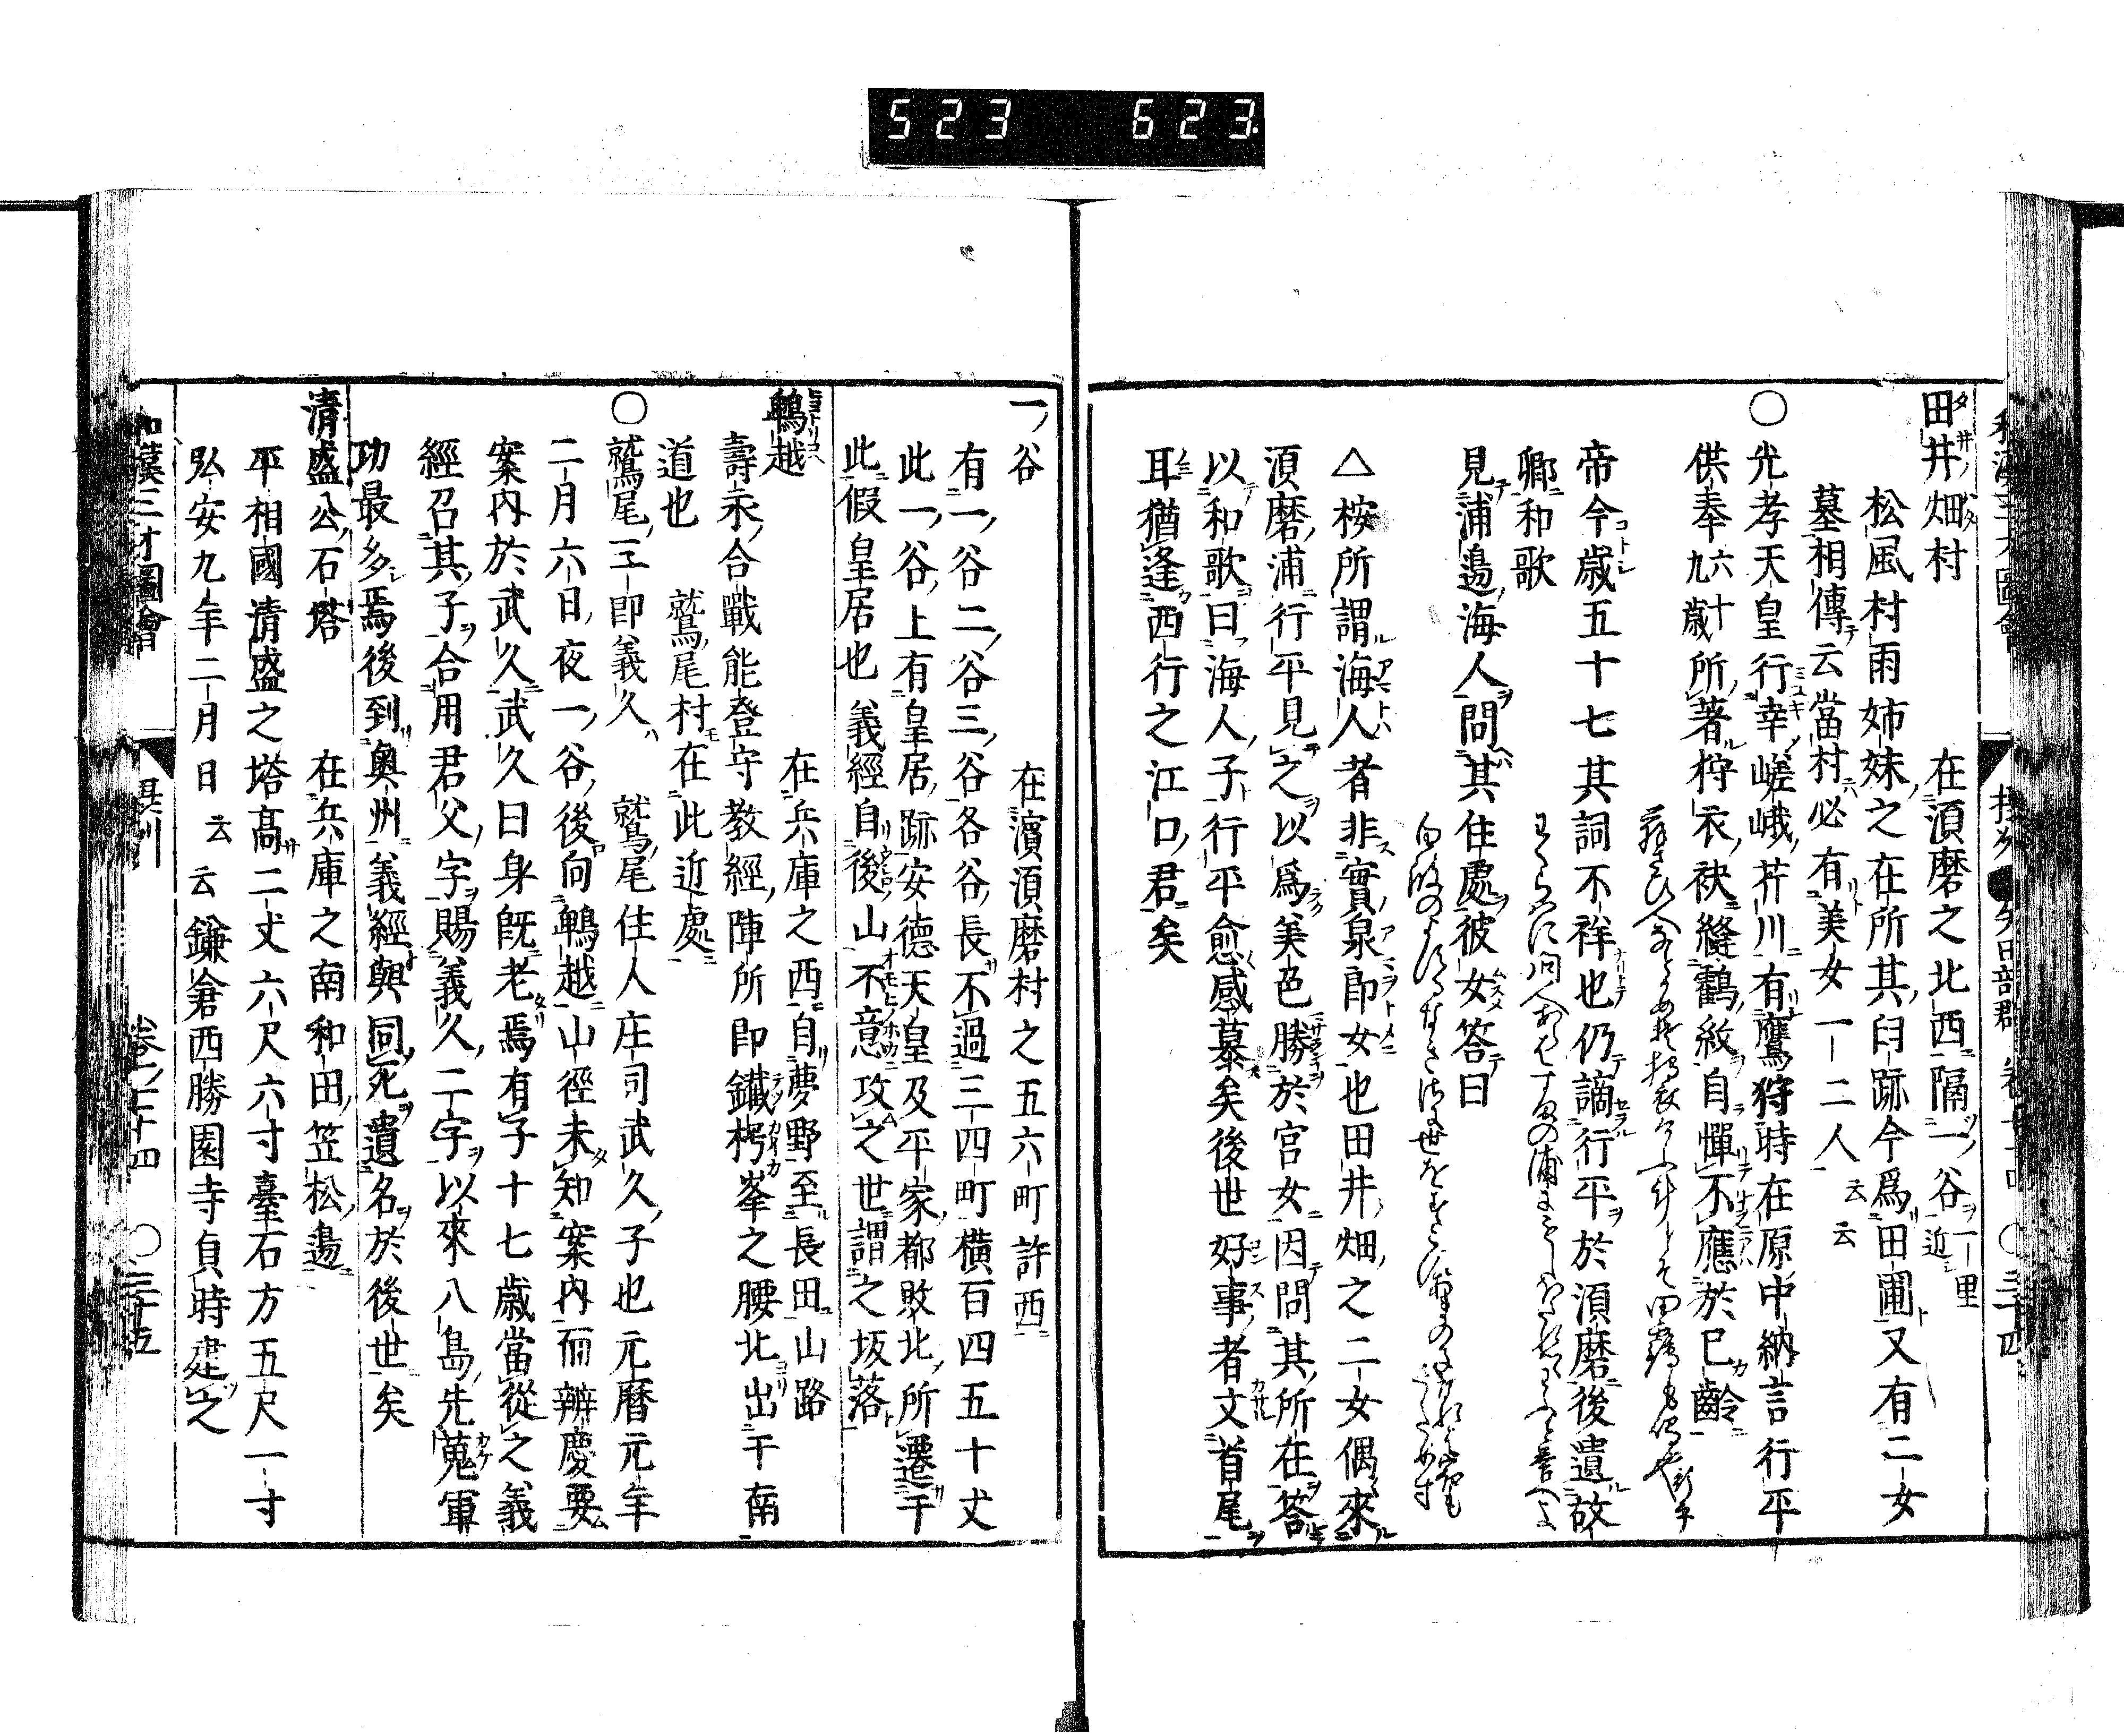 523 623
田井畑村 在須磨之北西隔一谷一里近
松風村雨姉妹之在所其臼跡今爲田圃又有二女
墓相傳云當村必有美女一二人云云
〇光孝天皇行幸嵯峨芹川有鷹狩時在原中納言行平
供奉六十九歳所著狩衣袂縫鶴紋自憚不應於已齡
帝今歳五十七其詞不祥也仍謫行平於須磨後遺故
卿和歌
わくらはに問人あらはすまの浦に
見浦邉海人問其住處彼女答曰
△桉所謂海人者非實泉郎女也田井畑之二女偶來
須磨浦行平見之以爲美色勝於宮女因問其所在答
以和歌曰海人子行平愈感慕矣後世好事者文首尾
耳猶逢西行之江口君矣
一谷 在濱須磨村之五六町許西
有一谷二谷三谷各谷長不過三四町横百四五十丈
此一谷上有皇居跡安德天皇及平家都敗北所遷于
此假皇居也義經自後山不意攻之世謂之坂落
鵯越 在兵庫之西自夢野至長田山路
壽永合戰能登守教經陣所即鐵枴峯之腰北出于南
道也 鷲尾村在此近處
〇鷲尾三郎義久 鷲尾住人庄司武久子也元曆元年
二月六日夜一谷後向鵯越山徑未知案内而辨慶要
案内於武久武久曰身既老焉有子十七歳當從之義
經召其子合用君父字賜義久二字以來八島先蒐軍
功最多焉後到奥州義經與同死遺名於後世矣
清盛公石塔 在兵庫之南和田笠松邉
平相國清盛之塔高二丈六尺六寸臺石方五尺一寸
弘安九年二月日云云鎌倉西勝園寺貞時建之
和漢三才圖會 攝州 卷七十四 〇三十五